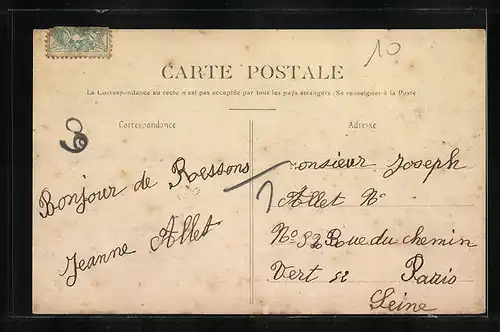 10
CARTE POSTALE
La Correspondance au recto n'est pas acceptée par tous les pays étrangers (Se renseigner à la Poste
Correspondance
Bonjour de Ressons
Jeanne Allet
Adresse
Monsieur Joseph
Allet N°
N° 52 Rue du chemin
Vert 52 Paris
Seine